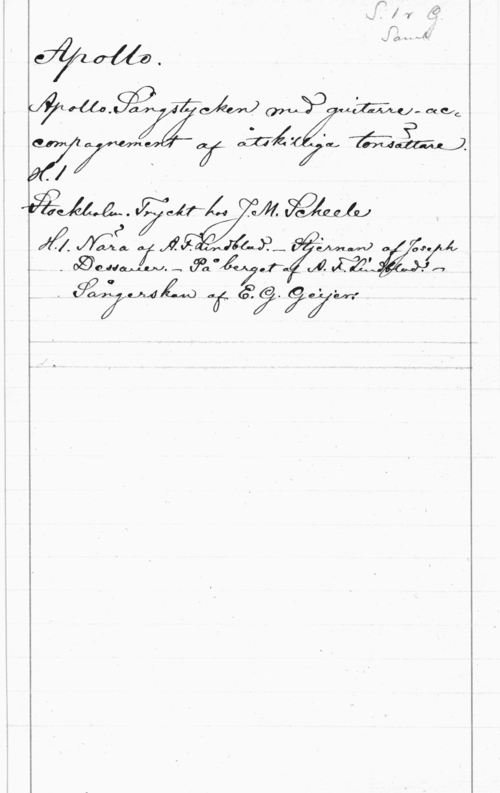 S. 1 r G.
Saml
Apollo.
Apollo. Sångstycken med guitarre-ac-
compagnement af åtskilliga tonsättare.
H.1
Stockholm. Tryckt hos J.M. Scheele
H.1. Nära af A.F. Lindblad. – Stjernan af Joseph
Dessauer. – På berget af A.F. Lindblad. –
Sångerskan af E.G. Geijer.